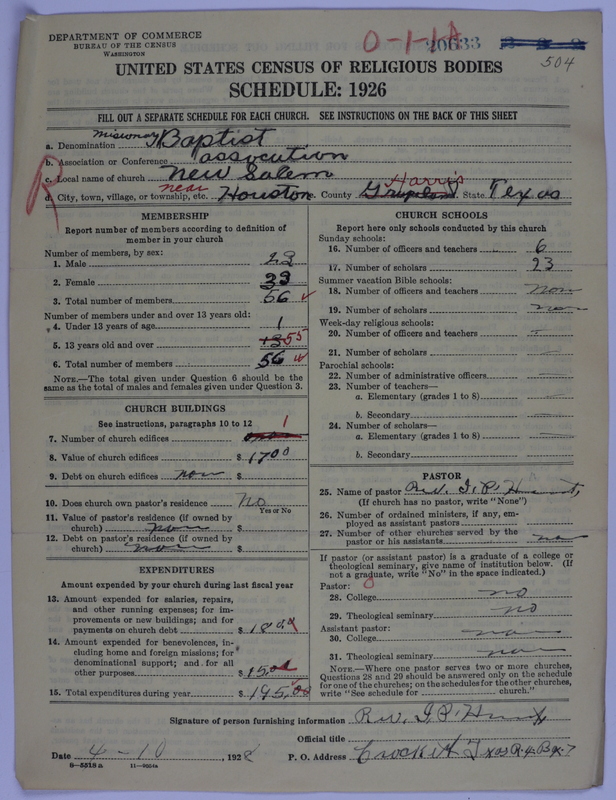 DEPARTMENT OF COMMERCE
BUREAU OF THE CENSUS
WASHINGTON
0-1-1A
20633
504
UNITED STATES CENSUS OF RELIGIOUS BODIES
SCHEDULE: 1926
FILL OUT A SEPARATE SCHEDULE FOR EACH CHURCH. SEE INSTRUCTIONS ON THE BACK OF THIS SHEET
a. Denomination Misionary Baptist
b. Association or Conference assocution
c. Local name of church New Salem
R
d. City, town, village, or township, etc. near Houston e. County Harris State Texas
MEMBERSHIP
Report number of members according to definition of
member in your church
Number of members, by sex:
1. Male 23
2. Female 33
3. Total number of members 56
Number of members under and over 13 years old:
4. Under 13 years of age 1
5. 13 years old and over 55
6. Total number of members 56
NOTE.—The total given under Question 6 should be the
same as the total of males and females given under Question 3.
CHURCH BUILDINGS
See instructions, paragraphs 10 to 12
7. Number of church edifices 1
8. Value of church edifices $ 1700
9. Debt on church edifices non $
10. Does church own pastor's residence No
Yes or No
11. Value of pastor's residence (if owned by
church) non $
12. Debt on pastor's residence (if owned by
church) non $
EXPENDITURES
Amount expended by your church during last fiscal year
13. Amount expended for salaries, repairs,
and other running expenses; for im-
provements or new buildings; and for
payments on church debt $ 180.00
14. Amount expended for benevolences, in-
cluding home and foreign missions; for
denominational support; and for all
other purposes $ 15.00
15. Total expenditures during year $ 195.00
CHURCH SCHOOLS
Report here only schools conducted by this church
Sunday schools:
16. Number of officers and teachers 6
17. Number of scholars 23
Summer vacation Bible schools:
18. Number of officers and teachers non
19. Number of scholars non
Week-day religious schools:
20. Number of officers and teachers
21. Number of scholars
Parochial schools:
22. Number of administrative officers
23. Number of teachers—
a. Elementary (grades 1 to 8)
b. Secondary
24. Number of scholars—
a. Elementary (grades 1 to 8)
b. Secondary
PASTOR
25. Name of pastor Rev. I. P.
(If church has no pastor, write "None")
26. Number of ordained ministers, if any, em-
ployed as assistant pastors
27. Number of other churches served by the
pastor or his assistants no
If pastor (or assistant pastor) is a graduate of a college or
theological seminary, give name of institution below. (If
not a graduate, write "No" in the space indicated.)
Pastor:
28. College no
29. Theological seminary no
Assistant pastor:
30. College non
31. Theological seminary non
NOTE.—Where one pastor serves two or more churches,
Questions 28 and 29 should be answered only on the schedule
for one of the churches; on the schedules for the other churches,
write "See schedule for church."
Signature of person furnishing information Rev. I. P.
Official title
Date 4-10, 1928 P. O. Address Crockett Texas R. 4 Bx. 7
8—5518a 11—9554a